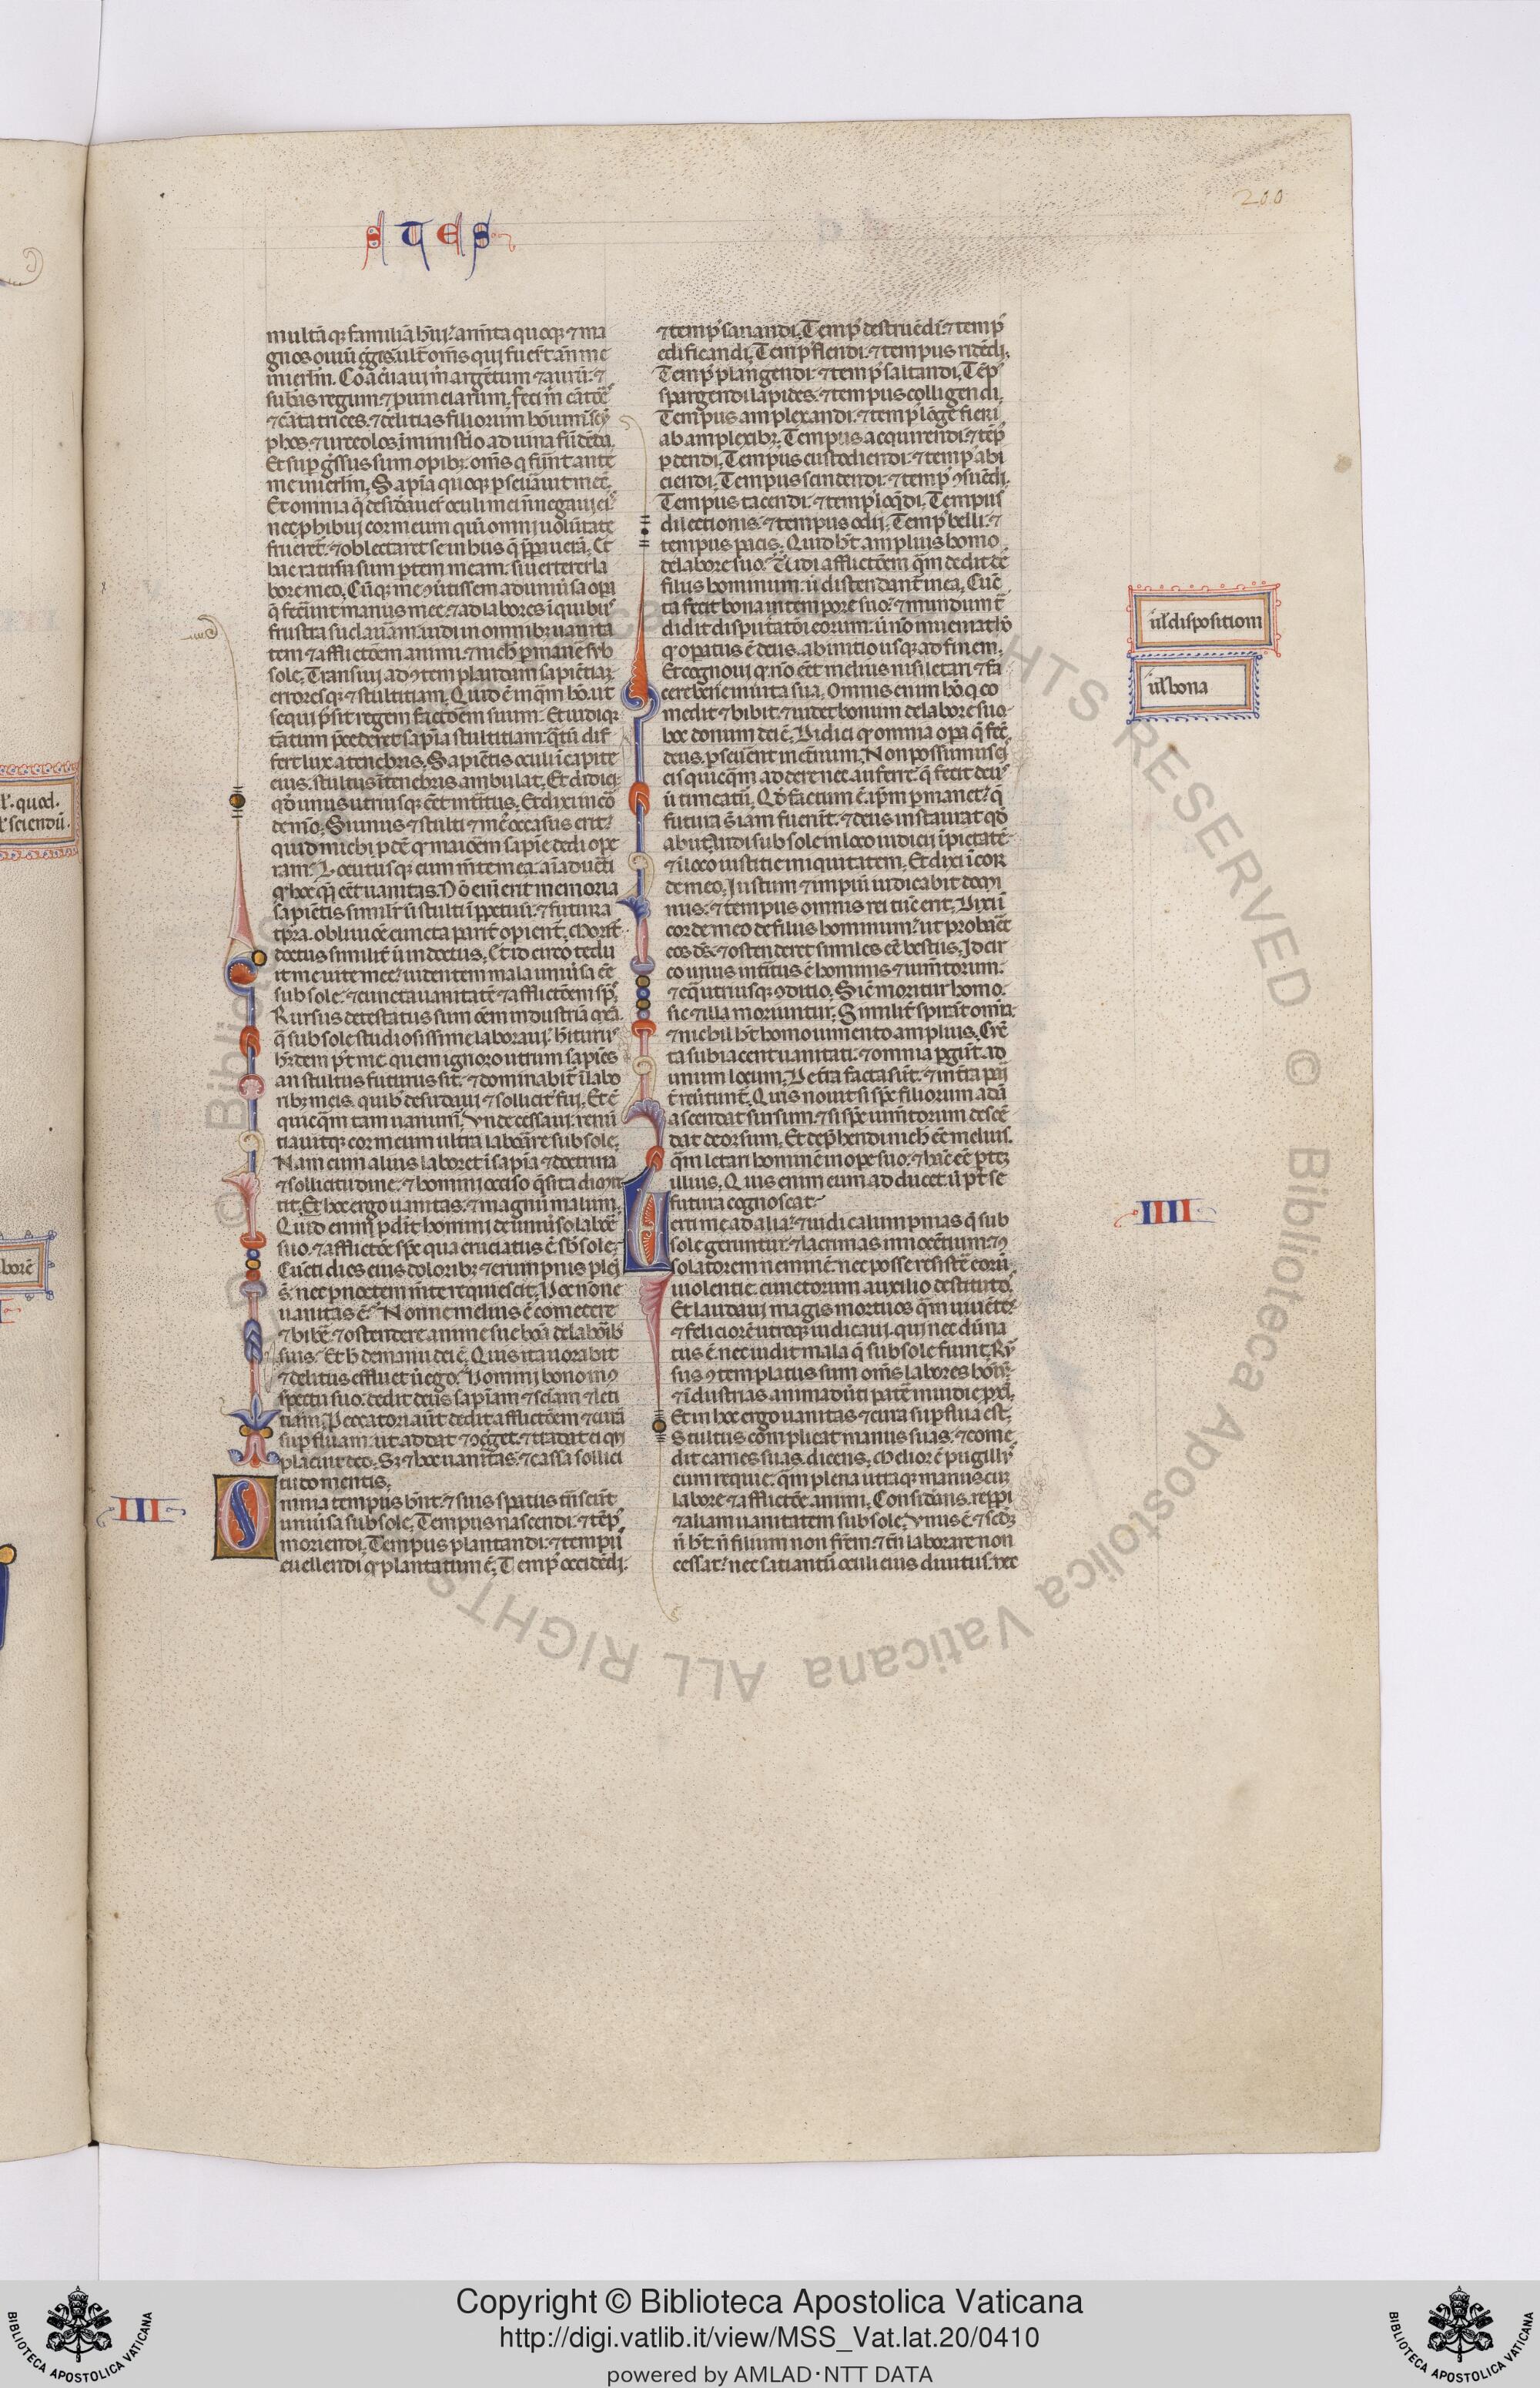 STES
200
multā qꝫ familiā hūi: armēta quoqꝫ ⁊ ma
gnos ouiū g̃ges. ult̃ om̃s qui fuer̃t an̄ me
in ierłm. Coac̃uaui m̄ argētum ⁊ aurū: ⁊
subas regum: ⁊ puinciarum. feci m̄ cātoes
⁊ cātatrices. ⁊ delitias filiorum hoūm: sci
phos. ⁊ urceolos. ī ministio ad uina fūdēda.
Et sup g̃ssus sum opibꝫ. om̃s q̄ fūnt ante
me in ierłm. Sapīa quoqꝫ p seūauit mec̄.
Et omnia q̄ desideauer̃ oculi mei ñ negaui eis
nec phibui cor meum quī omni uolūtate
frueret̃. ⁊ oblectaret se in hiis q̄ ppauera. Et
hāc ratus sum ptem meam. si uterer la
bore meo. Cūqꝫ me ꝯūtissem ad uniūsa opa
q̄ fecerūt manus mee ⁊ ad labores ī quibus
frustra sudauam. uidi in omnibꝫ uanita
tem ⁊ afflictōem animi. ⁊ nich̃ pmane sub
sole. Transiui ad ꝯtemplandam sapiētiaꝫ
erroresqꝫ ⁊ stultitiam. Quid ē inq̄m hō. ut
sequi possit regem factoēm suum. Et uidi qꝫ
tātum p̄cederet sapīa stultitiam: q̄tū dif
fert lux a tenebris. Sapiētis oculi ī capite
eius. stultus ī tenebris ambulat. Et didici
qd̄ unus utriusqꝫ eēt int̃itus. Et dixi in cō
de m̃o. Si unus ⁊ stulti ⁊ m̃s occasus erit:
quid michi pdē q̄ maiorem sapīe dedi ope
ram: Locutusqꝫ cum m̄te mea. aīaduerti
q̄ hoc q̄qꝫ eēt uanitas. Nō em̃ erit memoria
sapiētis similit̃ ut stulti ī ppetuū: ⁊ futura
tp̃ra. obliuioē cuncta parit̃ opient. Morit̃
doctus similit̃ ut indoctus. Et id circo tedu
it me uite mee: uidentem mala uniūsa eē
sub sole. ⁊ cuncta uanitatē ⁊ afflictōem sp̃s
Rursus detestatus sum oēm industriā meā
q̄ sub sole studiosissime laboraui: hītuus
h̃dem p̄t me. quem ignoro utrum sapiēs
an stultus futurus sit. ⁊ dominabit̃ ī labo
ribꝫ meis. quibꝫ desudaui ⁊ sollicit̃ fui. Et ē
quicq̄m tam uanum: Vnde cessaui. renū
tiauitqꝫ cor meum ultra laborare sub sole.
Nam cum alius laboret ī sapīa ⁊ doctrina
⁊ sollicitudine. ⁊ homini ocioso q̄sita dimi
tit. Et hoc ergo uanitas. ⁊ magnū malum.
Quid enim pdit homini de uniūso laboē
suo. ⁊ afflictoē sp̃c qua cruciatus ē sub sole:
Cūcti dies eius doloribꝫ ⁊ erumpnis pleī
s̄. nec p noctem m̄te requiescit. Hoc nōne
uanitas ē: Nonne melius ē comedere
⁊ bibē. ⁊ ostendere anime sue boā de laboibꝫ
suis: Et h̃ de manu dei ē. Quis ita uorabit
⁊ delitiis effluet ut ego: Homini bono in ꝯ
spectu suo. dedit deus sapīam ⁊ sc̄iam ⁊ leti
tiam. Peccatori aūt dedit afflictōem ⁊ curā
supfluam: ut addat ⁊ ꝯgget. ⁊ tradat ei qui
placuit deo. Sꝫ ⁊ hoc uanitas. ⁊ cassa sollici
tudo mentis.
III
Omnia tempus hn̄t. ⁊ suis spatiis t̃nseūt
uniūsa sub sole. Tempus nascendi. ⁊ tēp̃
moriendi. Tempus plantandi. ⁊ tempus
euellendi q̄ plantatum ē. Temp̃ occidēdi.
⁊ temp̃ sanandi. Temp̃ destruēdi. ⁊ temp̃
edificandi. Temp̃ flendi. ⁊ tempus ridēdi.
Temp̃ plangendi. ⁊ temp̃ saltandi. Tēp̃
spargendi lapides. ⁊ tempus colligendi.
Tempus amplexandi. ⁊ temp̃ lōge fieri
ab amplexibꝫ. Tempus acquirendi. ⁊ tēp̃
pdendi. Tempus custodiendi. ⁊ temp̃ abi
ciendi. Tempus scindendi. ⁊ temp̃ ꝯsuēdi.
Tempus tacendi. ⁊ temp̃ loq̄ndi. Tempus
dilectionis. ⁊ tempus odii. Temp̃ belli. ⁊
tempus pacis. Quid h̃t amplius homo
de labore suo: Uidi afflictōem q̄m dedit de
filiis hominum: ut distendant̃ in ea. Cūc
ta fecit bona in tempore suo: ⁊ mundum t̃
didit disputatōi eorum. ut nō inueniat hō
q̄ opatus ē deus. ab initio usqꝫ ad finem.
Et cognoui q̄ nō eēt melius nisi letari ⁊ fa
cere bene in uita sua. Omnis enim hō. q co
medit ⁊ bibit. ⁊ uidet bonum de labore suo
hoc donum dei ē. Didici q̄ omnia opa q̄ fec̄
deus. pseuērent in et̃num. Non possumus ei
eis quicq̄m addere nec auferre. q̄ fecit deus
ut timeatur. Qd̄ factum ē. ipm̄ pmanet: q̄
futura s̄ iam fuerūt. ⁊ deus instaurat qd̄
abiit. Uidi sub sole in loco iudicii ipietatē.
⁊ ī loco iustitie iniquitatem. Et dixi ī cor
de meo. Iustum ⁊ impiū iudicabit domi
nus: ⁊ tempus omnis rei tūc erit. Dixi ī
corde meo de filiis hominum: ut probaēt
eos ds̄. ⁊ ostenderet similes eē bestiis. Id cir
co unus int̃itus ē hominis ⁊ iumtorum.
⁊ eq̄ utriusqꝫ ꝯditio. Sic moritur homo.
sic ⁊ illa moriuntur. Similit̃ spirāt omīa
⁊ nichil h̃t homo iumento amplius. Cūc
ta subiacent uanitati. ⁊ omnia pgūt ad
unum locum. De t̃ra facta sūt. ⁊ in t̃ra pari
t̃ reūtunt̃. Quis nouit si sp̃c filiorum adā
ascendat sursum. ⁊ si sp̃c iumtorum descē
dat deorsum. Et deprehendi nich̃ eē melius.
q̄m letari hominē in ope suo. ⁊ hāc eē ptez
illius. Quis enim eum adducet. ut p̄t se
futura cognoscat:
IIII
Uerti me ad alia: ⁊ uidi calumpnias q̄ sub
sole geruntur. ⁊ lacrimas innocētium. ⁊ ꝯ
solatorem neminē. nec posse resistē eorū
uiolentie. cunctorum auxilio destitutos
Et laudaui magis mortuos q̄m uiuētes
⁊ feliciorē utroqꝫ iudicaui. qui nec dū na
tus ē. nec uidit mala q̄ sub sole fiunt. Rur
sus ꝯtemplatus sum om̃s labores hoīm:
⁊ īdustrias animaduerti patē inuidie pxī.
Et in hoc ergo uanitas ⁊ cura supflua est.
Stultus complicat manus suas. ⁊ come
dit carnes suas. dicens. Melior ē pugillus
cum requie. q̄m plena utraqꝫ manus cum
labore ⁊ afflictōe animi. Considerans. reppi
⁊ aliam uanitatem sub sole. Vnus ē. ⁊ scd̄ꝫ
ñ h̃t. ñ filium non fr̄em. ⁊ tñ laborare non
cessat: nec satiantur oculi eius diuitiis. nec
uł dispositioni
uł bona
ł. quod.
ł sciendū.
borē
Copyright © Biblioteca Apostolica Vaticana
http://digi.vatlib.it/view/MSS_Vat.lat.20/0410
powered by AMLAD·NTT DATA
BIBLIOTECA APOSTOLICA VATICANA
BIBLIOTECA APOSTOLICA VATICANA
© Biblioteca Apostolica Vaticana ALL RIGHTS RESERVED